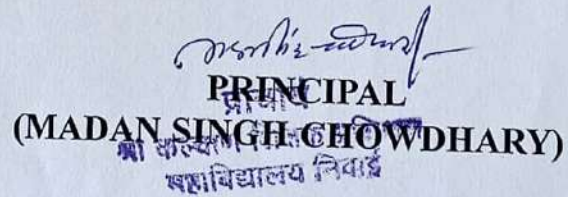 PRINCIPAL
प्राचार्य
(MADAN SINGH CHOWDHARY)
श्री कल्याण
महाविद्यालय निवाई